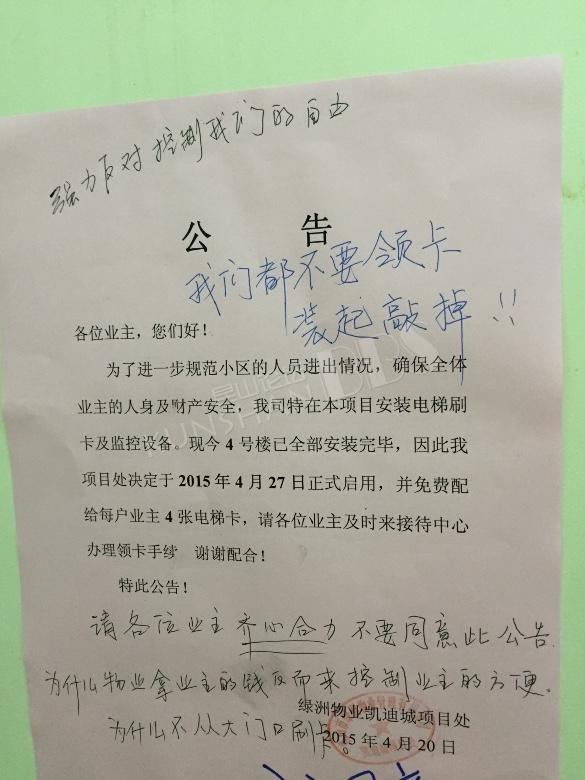 强力反对控制我们的自由
公 告
我们都不要领卡
装起敲掉!!
各位业主，您们好！
为了进一步规范小区的人员进出情况，确保全体
业主的人身及财产安全，我司特在本项目安装电梯刷
卡及监控设备。现今 4 号楼已全部安装完毕，因此我
项目处决定于 2015 年 4 月 27 日正式启用，并免费配
给每户业主 4 张电梯卡，请各位业主及时来接待中心
办理领卡手续 谢谢配合！
特此公告！
请各位业主齐心合力不要同意此公告
为什么物业拿业主的钱反而来控制业主的方便。
绿洲物业凯迪城项目处
为什么不从大门口刷卡。
2015 年 4 月 20 日